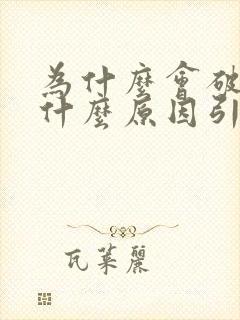 為什麼會破
什麼原因引
瓦萊麗